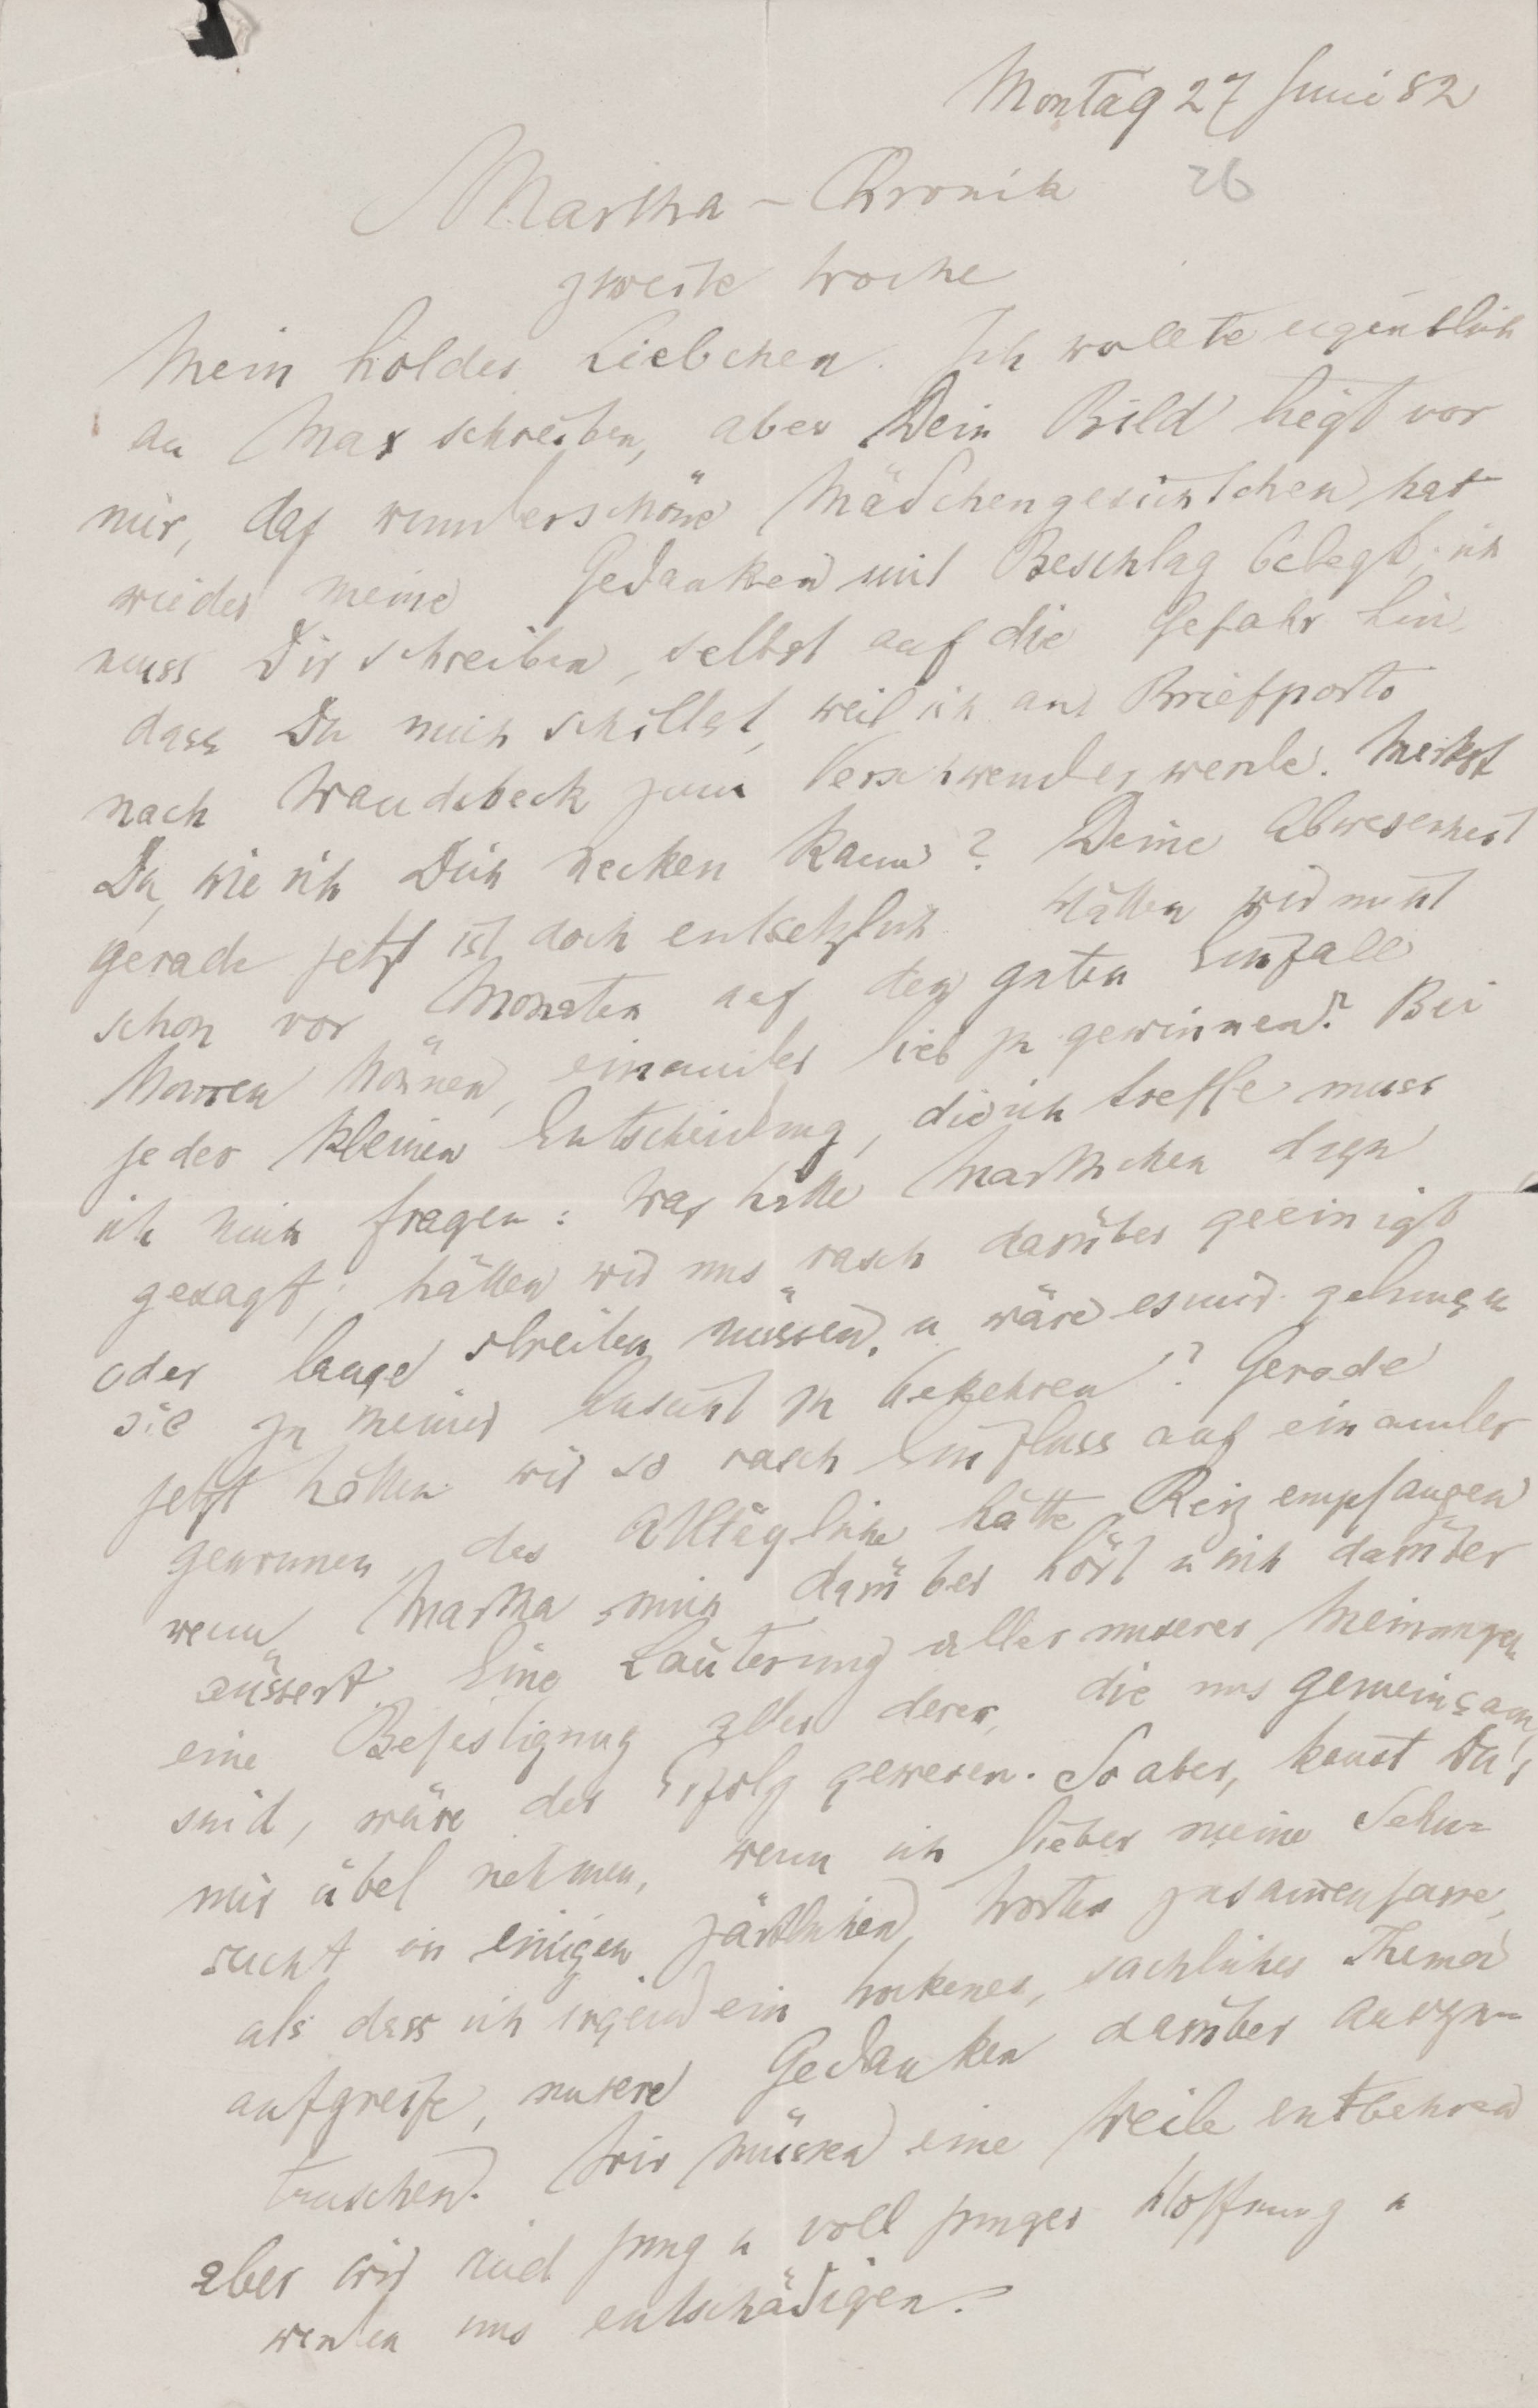 Montag 27 Juni 82
Martha - Kronik 26
zweite Woche
Mein holdes Liebchen. Ich wollte eigentlich
an Max schreiben, aber Dein Bild liegt vor
mir, das wunderschöne Mädchengesichtchen hat
wieder meine Gedanken mit Beschlag belegt, ich
muss Dir schreiben, selbst auf die Gefahr hin,
dass Du mich schiltst, weil ich ans Briefporto
nach Wandsbeck zum Verschwender werde. Merkst
Du, wie ich Dich necken kann? Deine Abwesenheit
gerade jetzt ist doch entsetzlich. Hätten wir nicht
schon vor Monaten auf den guten Einfall
kom̄en kön̄en, einander lieb zu gewinnen? Bei
jeder kleinen Entscheidung, die ich treffe muss
ich mich fragen: Was hätte Marthchen dazu
gesagt; hätten wir uns rasch darüber geeinigt
oder lange streiten müssen, u wäre es mir gelungen
sie zu meiner Ansicht zu bekehren? Gerade
jetzt hätten wir so rasch Einfluss auf einander
gewonnen, das Alltägliche hätte Reiz empfangen
wenn Martha mich darüber hört u sich darüber
äussert. Eine Läuterung aller unserer Meinungen
eine Befestigung aller derer, die uns gemeinsam
sind, wäre der Erfolg gewesen. So aber, kannst Du's
mir übel nehmen, wenn ich lieber meine Sehn-
sucht in einigen zärtlichen Worten zusam̄enfasse,
als dass ich irgend ein trockenes, sachliches Thema
aufgreife, unsere Gedanken darüber auszu-
tauschen. Wir müssen eine Weile entbehren
aber wir sind jung u voll junger Hoffnung u
werden uns entschädigen.